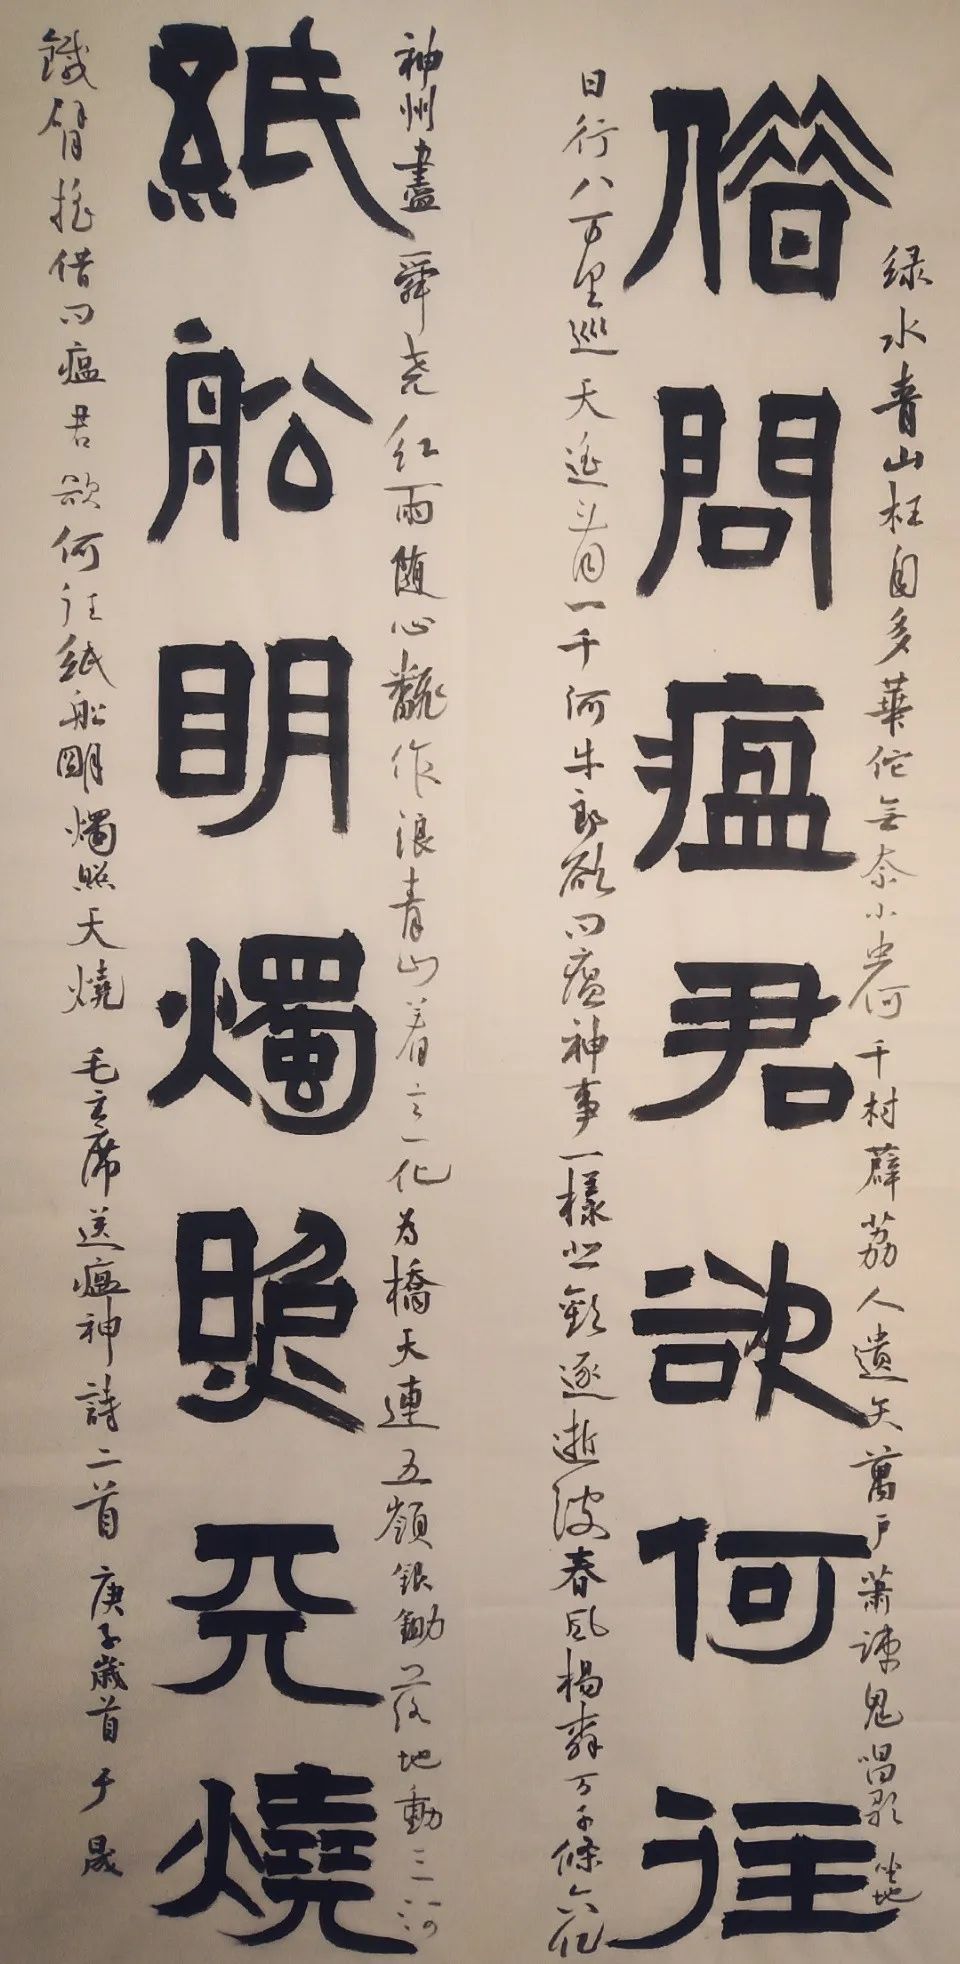 绿水青山枉自多華佗無奈小虫何千村薜荔人遺矢萬户萧疎鬼唱歌坐地
借問瘟君欲何往
日行八万里巡天遥看一千河牛郎欲问瘟神事一樣悲歡逐逝波春风楊柳万千條六亿
神州盡舜尧红雨随心翻作浪青山着意化为橋天連五嶺銀鋤落地動三河
紙船明燭照天燒
鐵臂摇借问瘟君欲何往紙船明燭照天燒 毛主席送瘟神詩二首 庚子歲首 于晟